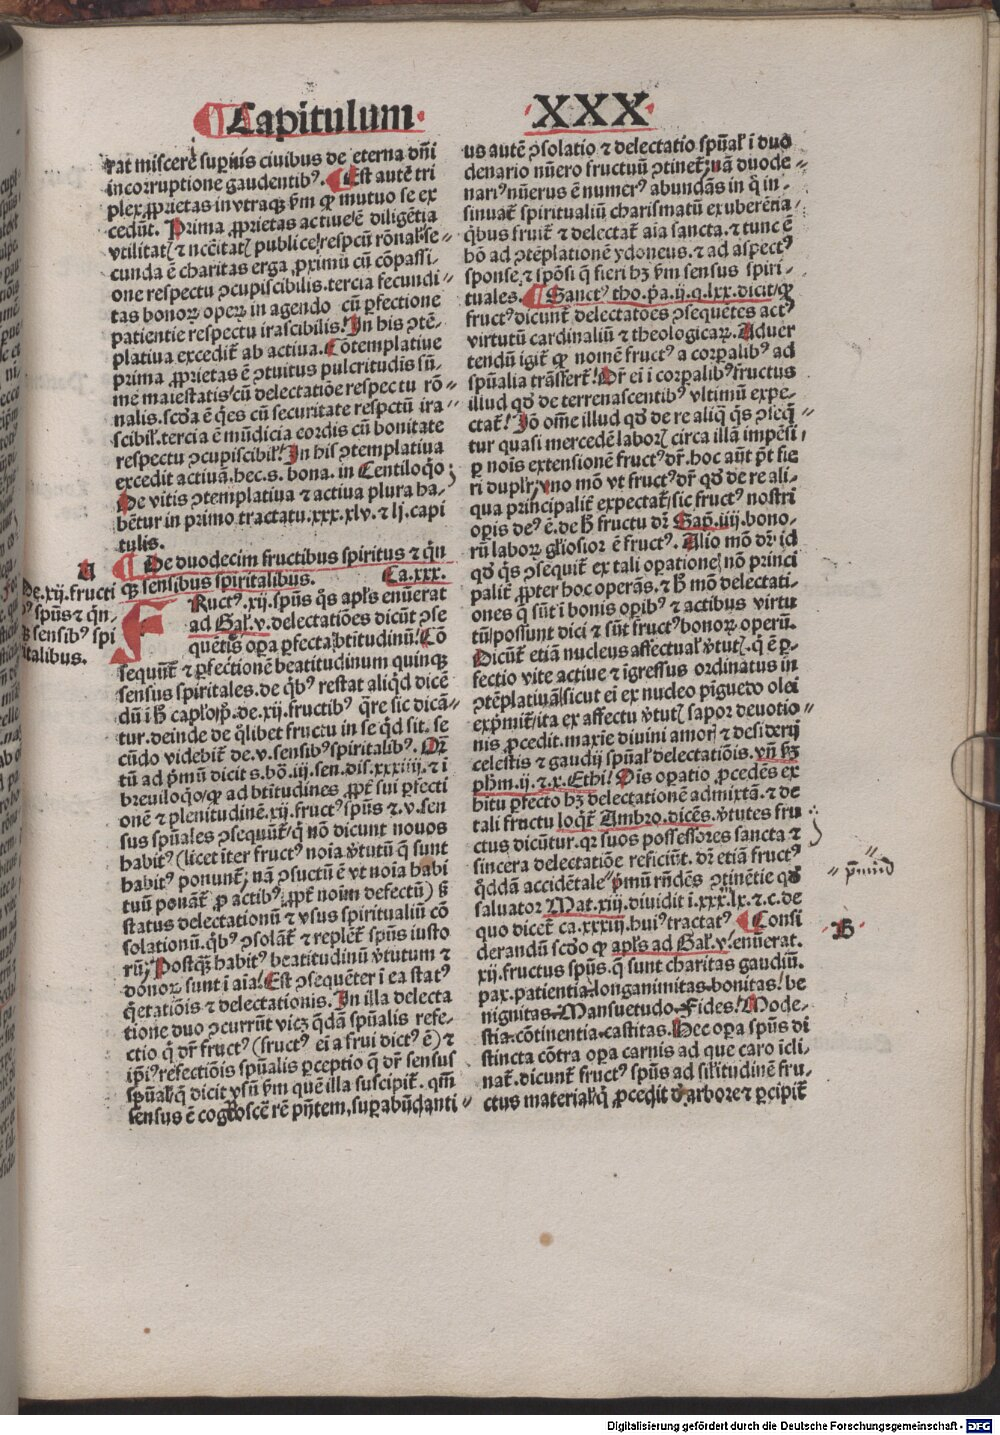 Capitulum XXX
rat miscerē supius ciuibus de eterna dñi
incorruptione gaudentibꝰ. Est autē tri
plex ꝓprietas in vtraqꝫ vñ ꝙ mutuo se ex
cedūt. Prima ꝓprietas actiue ē diligētia
vtilitatꝭ ⁊ ncc̄itatꝭ publice respcū rōnał se⸗
cunda ē charitas erga ꝓximū cū cōpassi⸗
one respectu ꝯcupiscibilis. tercia fecundi⸗
tas bonoꝝ operꝝ in agendo cū ꝑfectione
patientie respectu irascibilis. In his ꝯtē⸗
platiua excedit̄ ab actiua. Cōtemplatiue
prima ꝓprietas ē ꝯtuitus pulcritudis sū⸗
me maiestatis cū delectatiōe respectu rō⸗
nalis. scd̄a ē q̇es cū securitate respctū ira⸗
scibił. tercia ē mūdicia cordis cū bonitate
respectu ꝯcupiscibił. In his ꝯtemplatiua
excedit actiuā. hec. s. bona. in Centiloq̇o;
De vitis ꝯtemplatiua ⁊ actiua plura ha⸗
bētur in primo tractatu. xxx. xlv. ⁊ lj. capi
tulis.
De duodecim fructibus spiritus ⁊ q̇n
qꝫ sensibus spiritalibus. Ca. xxx.
A
De. xij. fructi
bꝰ spūs ⁊ q̇n⸗
qꝫ sensibꝰ spi
ritalibus.
FRuctꝰ. xij. spūs q̄s apl̄s enūerat
ad Gał. v. delectatiōes dicūt ꝯse
quētꝭs oꝑa ꝑfecta btitudinū. Cō
sequūt̄ ⁊ ꝑfectionē beatitudinum quinqꝫ
sensus spiritales. de q̇bꝰ restat aliq̇d dicē
dū i h̄ capl̄o. ꝓ. de. xij. fructibꝰ q̄re sic dicā⸗
tur. deinde de q̇libet fructu in se q̇d sit. se
cūdo videbit̄ de. v. sensibꝰ spiritalibꝰ. Qr̄
tū ad p̄mū dicit s. bō. iij. sen. dis. xxxiiij. ⁊ i
breuiloq̇o ꝙ ad btitudines ꝓpt̄ sui ꝑfecti
onē ⁊ plenitudinē. xij. fructꝰ spūs ⁊. v. sen
sus spūales ꝯsequūt̄ q̄ nō dicunt nouos
habitꝰ (licet iter fructꝰ noīa v̄tutū q̄ sunt
habitꝰ ponunt̄; nā ꝯsuctū ē vt noīa habi
tuū ponāt̄ ꝓ actibꝰ ꝓpt̄ noīm defectū) sꝫ
status delectationū ⁊ vsus spiritualiū cō
solationū. q̇bꝰ ꝯsolāt̄ ⁊ replēt̄ spūs iusto
rū; Postq̄ꝫ habitꝰ beatitudinū v̄tutum ⁊
donoꝝ sunt i aīa. Est ꝯsequēter i ea statꝰ
q̇etatiōis ⁊ delectationis. In illa delecta
tione duo ꝯcurrūt vicꝫ q̄dā spūalis refe⸗
ctio q̄ dr̄ fructꝰ (fructꝰ ei a frui dictꝰ ē) ⁊
ip̄iꝰ refectiōis spūalis ꝑceptio q̄ dr̄ sensus
spūał q̄ dicit vsū vm̄ quē illa suscipit̄. qm̄
sensus ē cognoscē rē pn̄tem, suꝑabūdanti⸗
us autē ꝯsolatio ⁊ delectatio spūał i duo
denario nūero fructuū ꝯtinet̄; nā duode⸗
nariꝰ nūerus ē numerꝰ abundās in q̇ in⸗
sinuat̄ spiritualiū charismatū exuberētia⸗
q̇bus fruit̄ ⁊ delectat̄ aīa sancta. ⁊ tunc ē
hō ad ꝯtēplationē ydoneus. ⁊ ad aspectꝰ
sponse ⁊ spōsi q̇ fieri hꝫ vm̄ sensus spiri⸗
tuales. Sanctꝰ tho. p̄a. ij. q. lxx. dicit ꝙ
fructꝰ dicunt̄ delectatōes ꝯsequētes actꝰ
virtutū cardinaliū ⁊ theologicaꝝ. Aduer
tendū igit̄ ꝙ nomē fructꝰ a corꝑalibꝰ ad
spūalia trāsfert̄. Dr̄ ei i corꝑalibꝰ fructus
illud qd̄ de terrenascentibꝰ vltimū expe⸗
ctat̄. Iō om̄e illud qd̄ de re aliq̄ q̇s ꝯseq̄⸗
tur quasi mercedē laborꝭ circa illā impēsi
ꝑ noīs extensionē fructꝰ dr̄. hoc aūt p̄t fie
ri dupłr. vno mō vt fructꝰ dr̄ qd̄ de re ali⸗
qua principalit̄ expectat̄ sic fructꝰ nostri
oꝑis deꝰ ē. de h̄ fructu dr̄ Sap. iij. bono⸗
rū laboꝝ gliosior ē fructꝰ. Alio mō dr̄ id
qd̄ q̇s ꝯsequit̄ ex tali opatione nō princi
palit̄ ꝓpter hoc operās. ⁊ h̄ mō delectati⸗
ones q̄ sūt i bonis oꝑibꝰ ⁊ actibus virtu
tū possunt dici ⁊ sūt fructꝰ bonoꝝ operū.
Dicūt̄ etiā nucleus affectuał v̄tutꝭ. q̄ ē ꝑ⸗
fectio vite actiue ⁊ igressus ordinatus in
ꝯtēplatiuā sicut ei ex nucleo piguedo olei
exp̄mit̄ ita ex affectu v̄tutꝭ sapor deuotio⸗
nis ꝓcedit. maxīe diuini amorꝭ ⁊ desiderij
celestis ⁊ gaudij spūał delectatiōis. vñ sꝫ
pħm. ij. ⁊. x. Ethi. Dis oꝑatio ꝓcedēs ex
hitu ꝑfecto hꝫ delectationē admixtā. ⁊ de
tali fructu loq̇t̄ Ambro. dicēs. v̄tutes fru
ctus dicūtur. qꝛ suos possessores sancta ⁊
sincera delectatiōe reficiūt. dr̄ etiā fructꝰ
q̇ddā accidētale p̄mū rn̄dēs ꝯtinētie qd̄
saluator Mat. xiij. diuidit i. xxx. lx. ⁊. c. de
quo dicet̄ ca. xxxiij. huiꝰ tractatꝰ. Consi
derandū scd̄o ꝙ apl̄s ad Gał. v. enūerat.
xij. fructus spūs. q̄ sunt charitas gaudiū.
pax. patientia. longanimitas. bonitas. be
nignitas. Mansuetudo. Fides. Mode⸗
stia. cōtinentia. castitas. Hec oꝑa spūs di
stincta cōtra oꝑa carnis ad que caro icli⸗
nat̄. dicunt̄ fructꝰ spūs ad siłitudinē fru⸗
ctus materiał q̇ ꝓcedit d̄ arbore ⁊ ꝑcipit̄
B
Digitalisierung gefördert durch die Deutsche Forschungsgemeinschaft - DFG